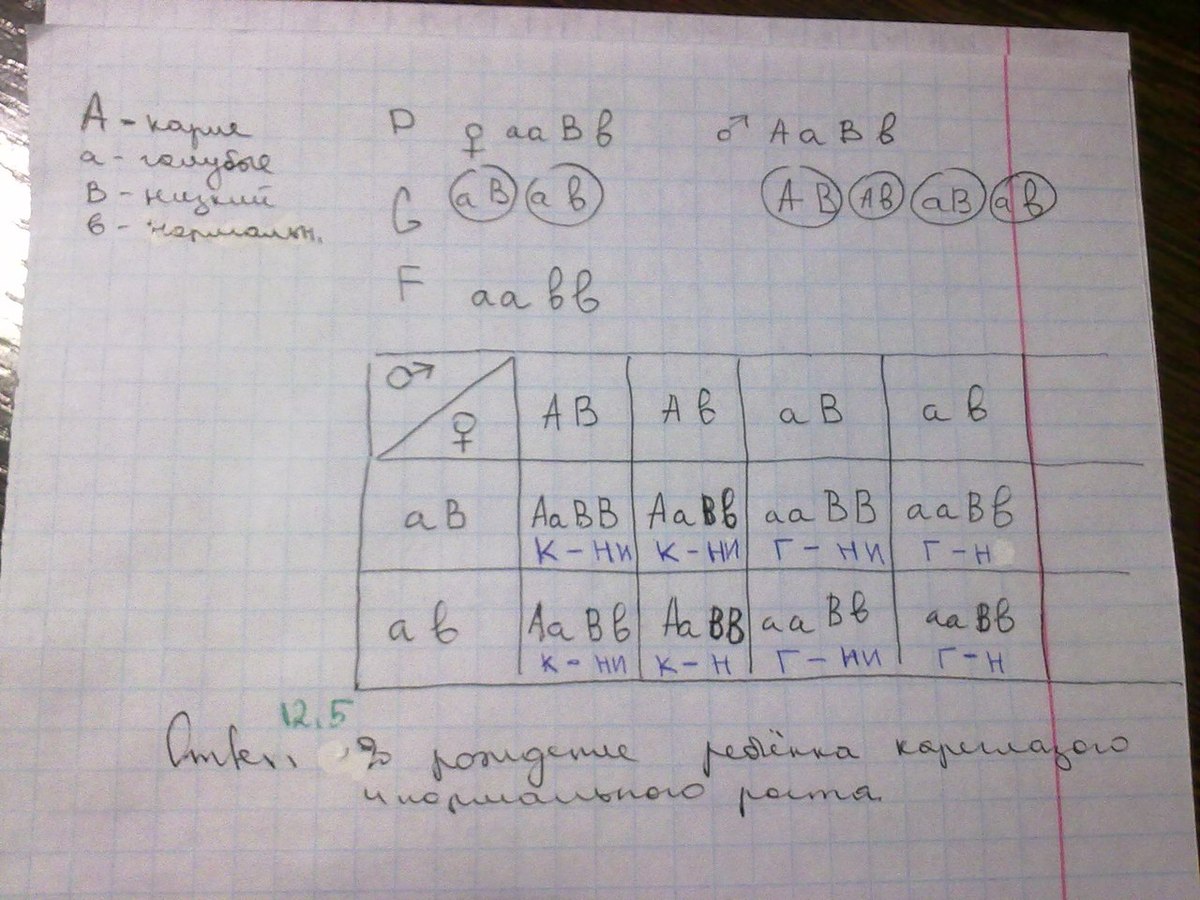 А - карие
а - голубые
В - низкий
в - нормальн.
Р ♀ ааВв ♂ АаВв
G аВ ав АВ Ав аВ ав
F аавв
♂ ♀ АВ Ав аВ ав
аВ АаВВ АаВв ааВВ ааВв
К - НИ К - НИ Г - НИ Г - Н
ав АаВв АаВВ ааВв ааВв
К - НИ К - Н Г - НИ Г - Н
12,5
Ответ: % рождение ребёнка кареглазого
и нормального роста.